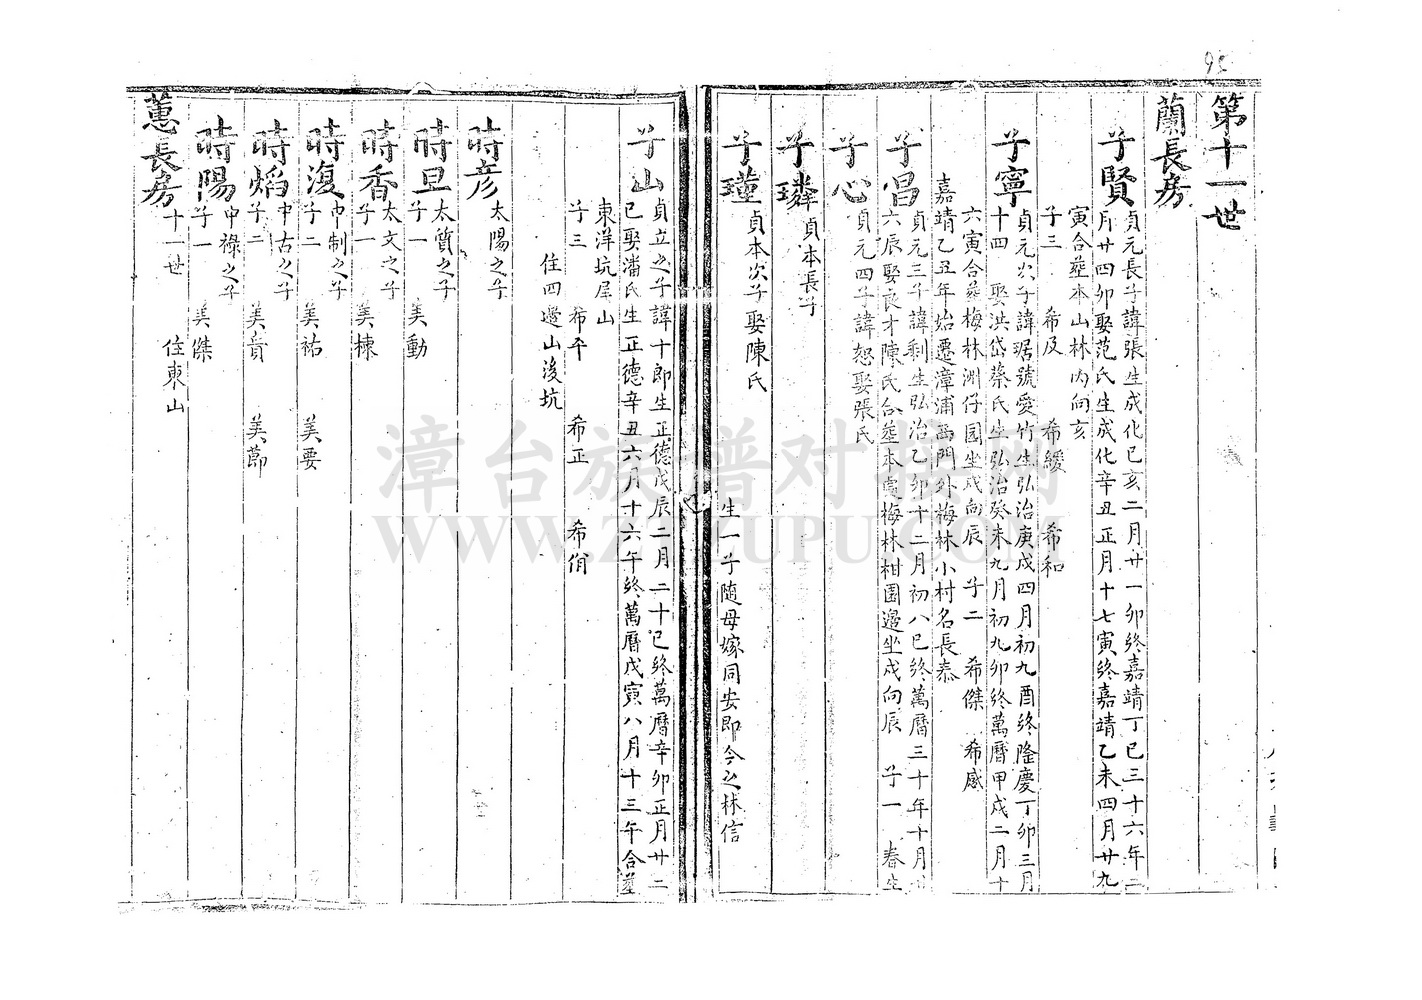 95
第十一世
蘭長房
子賢
貞元長子諱張生成化己亥二月廿一卯終嘉靖丁巳三十六年二
月廿四卯娶范氏生成化辛丑正月十七寅終嘉靖乙未四月廿九
寅合葬本山林內向亥
子三 希及 希緩 希和
子寧
貞元次子諱琚號愛竹生弘治庚戌四月初九酉終隆慶丁卯三月
十四 娶洪岱蔡氏生弘治癸未九月初九卯終萬曆甲戌二月十
六寅合葬梅林洲仔園坐戌向辰 子二 希傑 希感
嘉靖乙丑年始遷漳浦西門外梅林小村名長泰
子昌
貞元三子諱剩生弘治乙卯十二月初八巳終萬曆三十年十月
六辰娶良才陳氏合葬本處梅林柑園邊坐戌向辰 子一 春生
子心
貞元四子諱恕娶張氏
子璘
貞本長子
子瑾
貞本次子娶陳氏 生一子隨母嫁同安即今之林信
子山
貞立之子諱十郎生正德戊辰二月二十巳終萬曆辛卯正月廿二
巳娶潘氏生正德辛丑六月十六午終萬曆戊寅八月十三午合葬
東洋坑尾山
子三 希平 希正 希俏
住四邊山後坑
時彥
太陽之子
時旦
太質之子
子一 美動
時香
太文之子
子一 美棟
時復
中制之子
子二 美祐 美要
時焰
中古之子
子二 美貴 美節
時陽
中祿之子
子一 美傑
蕙長房
十一世 住東山
漳台族谱对接网
WWW.ZTZUPU.COM